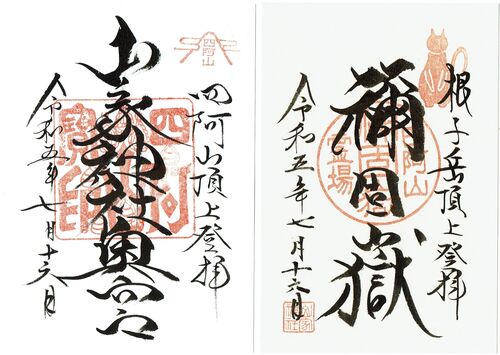 四阿山
四阿山頂上登拝
山家神社奥宮
令和五年七月十六日
根子岳頂上登拝
禰固嶽
令和五年七月十六日